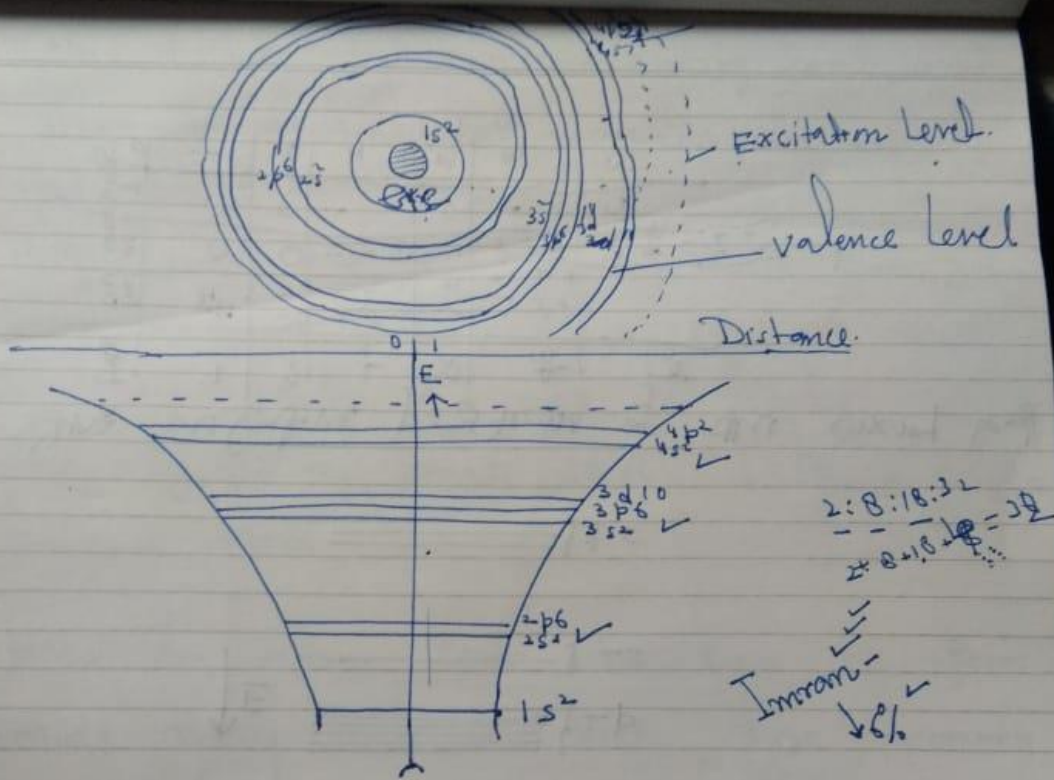 1s²
2p⁶ 2s²
3s²
Excitation Level.
Valence Level
Distance.
0 1
E
4p²
4s²
3d10
3p6
3s2
2p6
2s2
1s²
2:8:18:32
Imran